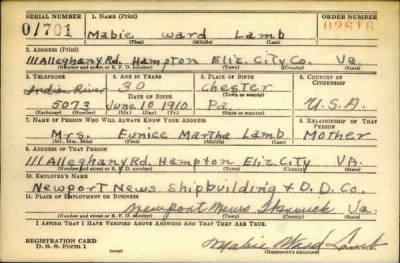 SERIAL NUMBER 1. NAME (Print) ORDER NUMBER
01701 Mabie Ward Lamb
(First) (Middle) (Last)
2. ADDRESS (Print)
111 Alleghany Rd. Hampton Eliz. City Co. Va.
(Number and street or R. F. D. number) (Town) (County) (State)
3. TELEPHONE 4. AGE IN YEARS 5. PLACE OF BIRTH 6. COUNTRY OF CITIZENSHIP
Indian River 30 Chester
DATE OF BIRTH (Town or county)
5073 June 10 1910 Pa. U.S.A.
(Exchange) (Number) (Mo.) (Day) (Yr.) (State or country)
7. NAME OF PERSON WHO WILL ALWAYS KNOW YOUR ADDRESS 8. RELATIONSHIP OF THAT PERSON
Mrs. Eunice Martha Lamb Mother
(Mr., Mrs., Miss) (First) (Middle) (Last)
9. ADDRESS OF THAT PERSON
111 Alleghany Rd. Hampton Eliz. City VA.
(Number and street or R. F. D. number) (Town) (County) (State)
10. EMPLOYER'S NAME
Newport News Shipbuilding & D. D. Co.
11. PLACE OF EMPLOYMENT OR BUSINESS
Newport News Warwick Va.
(Number and street or R. F. D. number) (Town) (County) (State)
I AFFIRM THAT I HAVE VERIFIED ABOVE ANSWERS AND THAT THEY ARE TRUE.
REGISTRATION CARD
D. S. S. Form 1 Mabie Ward Lamb
(Registrant's signature)